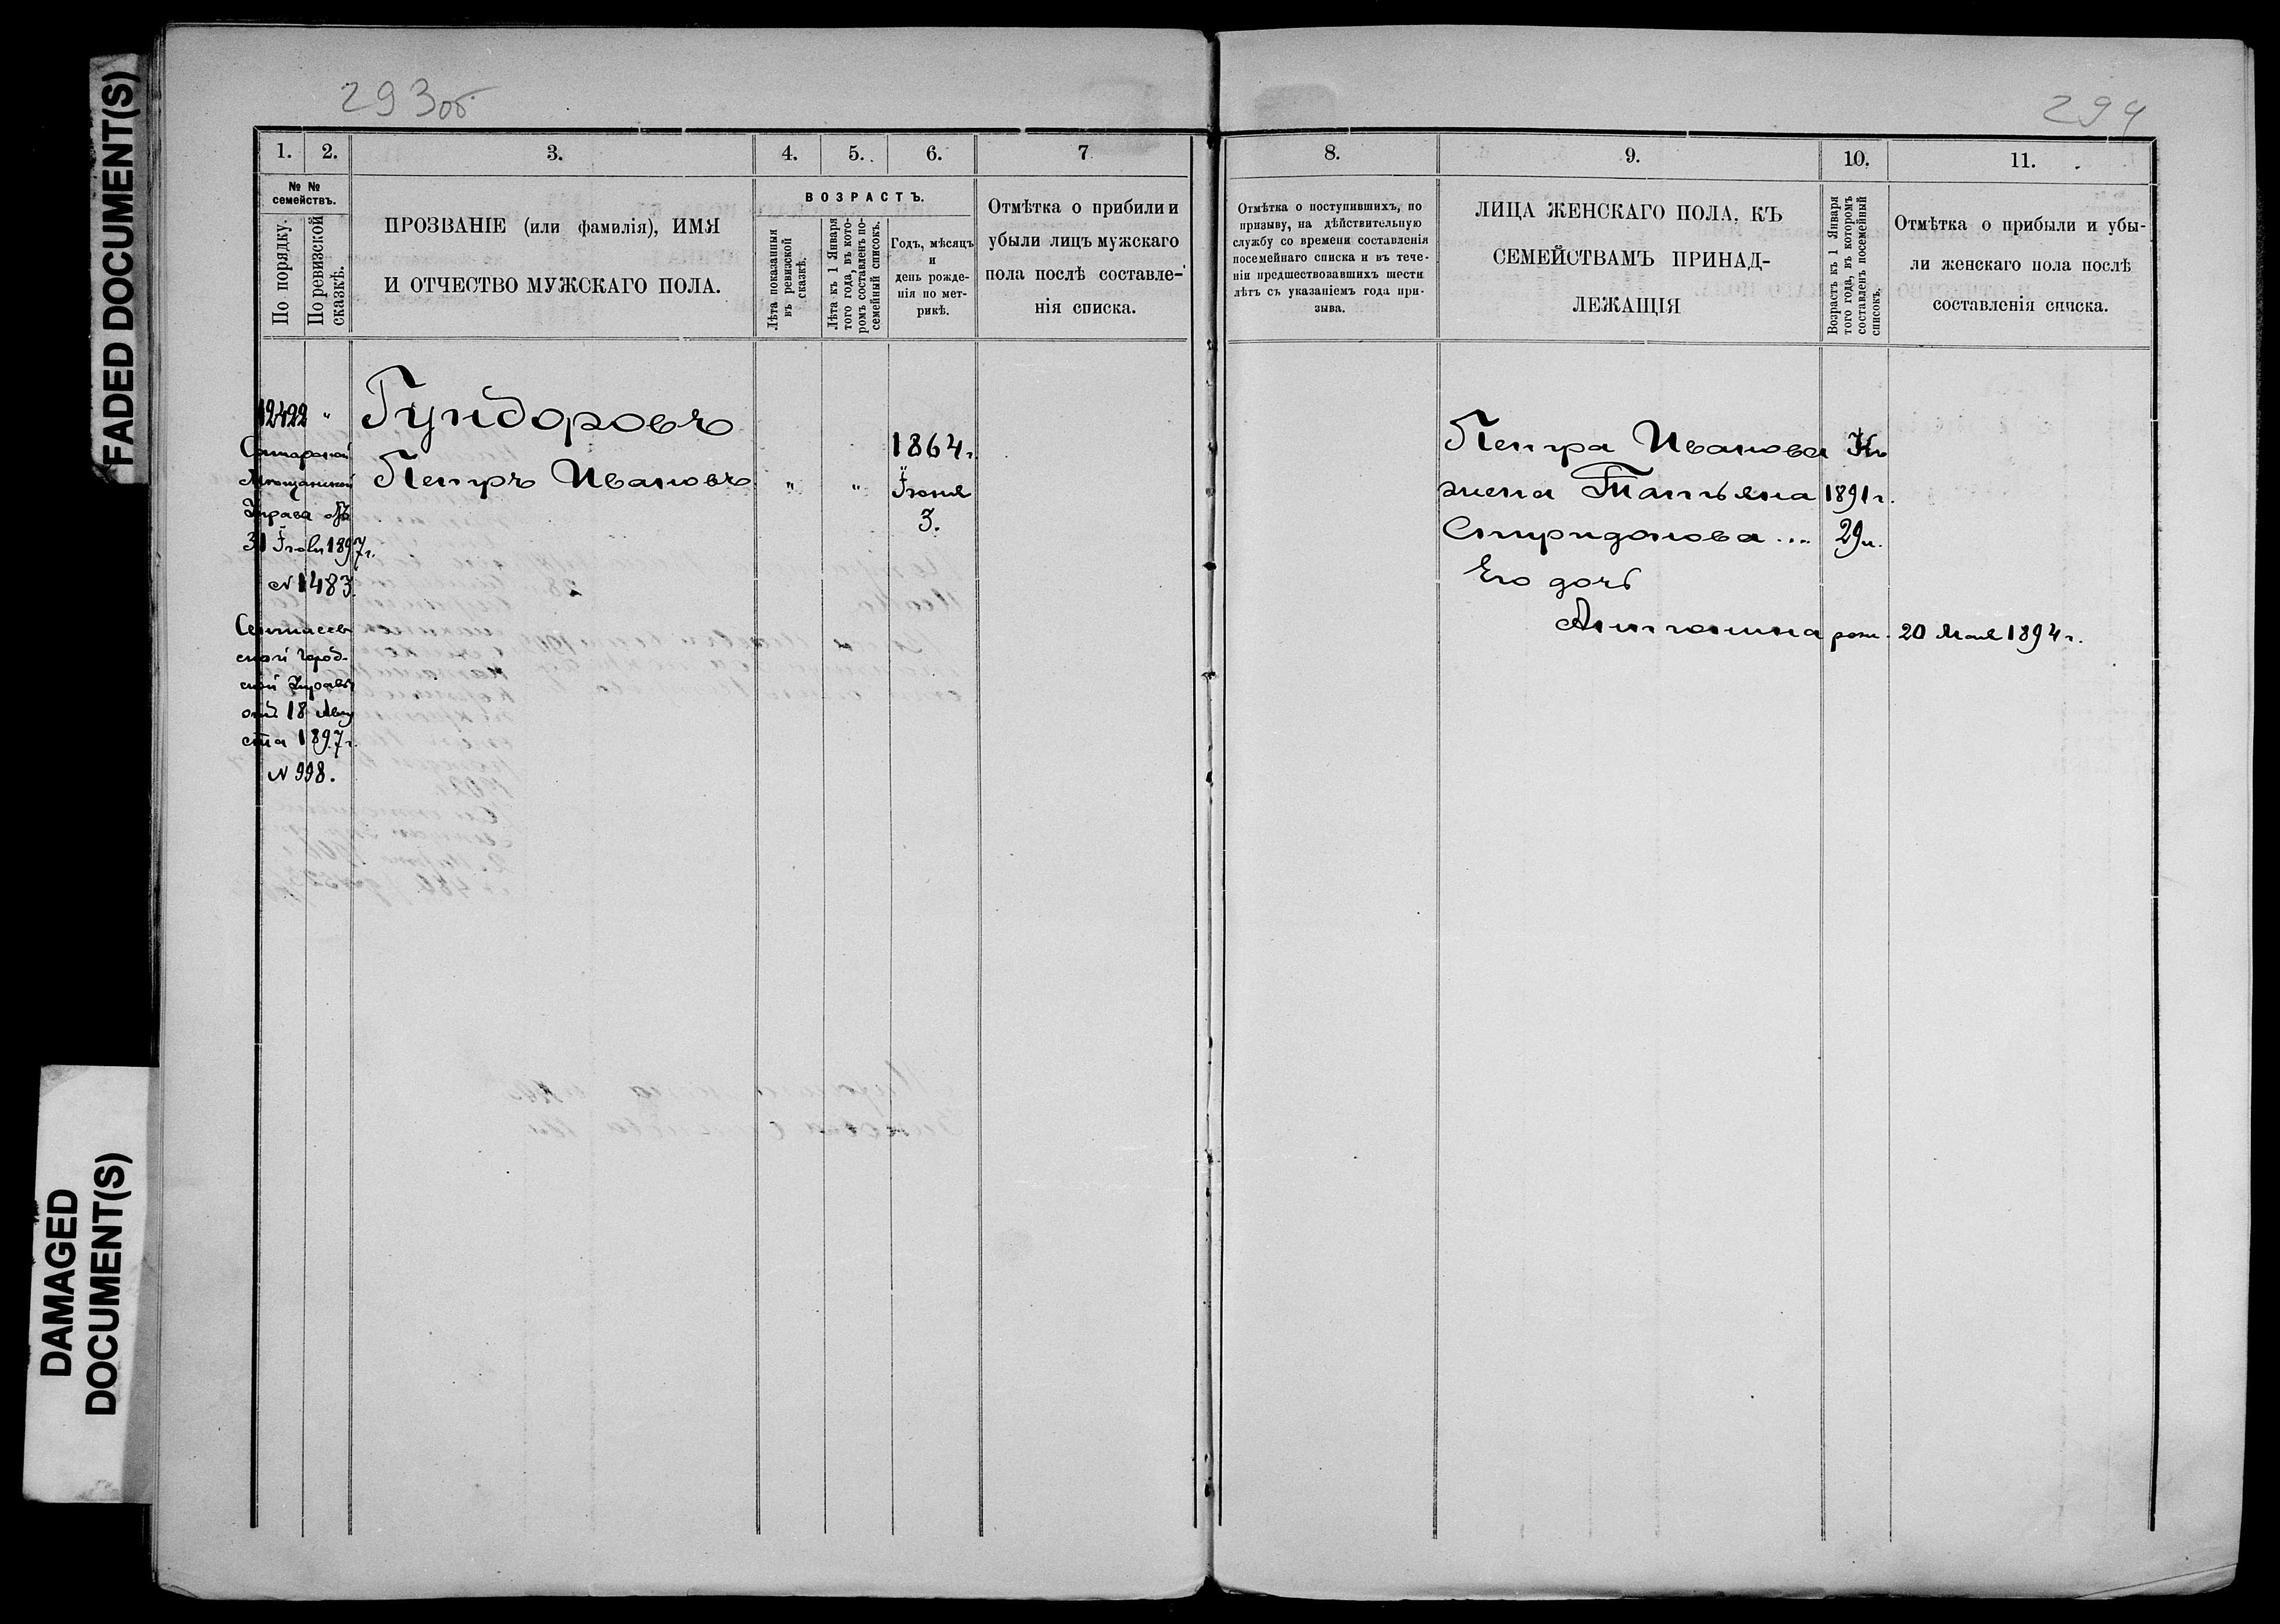 FADED DOCUMENT(S)
DAMAGED
DOCUMENT(S)
293об
1. 2. 3. 4. 5. 6. 7
№ №
семействъ.
По порядку.
По ревизской
сказкѣ.
ПРОЗВАНІЕ (или фамилія), ИМЯ
И ОТЧЕСТВО МУЖСКАГО ПОЛА.
ВОЗРАСТЪ.
Лѣта показанныя
въ ревизской
сказкѣ.
Лѣта къ 1 Января
того года, въ кото-
ромъ составленъ по-
семейный списокъ.
Годъ, мѣсяцъ
и
день рожде-
нія по мет-
рикѣ.
Отмѣтка о прибыли и
убыли лицъ мужскаго
пола послѣ составле-
нія списка.
12422 "
Самарской
Мѣщанской
Управы отъ
31 Іюля 1897 г.
N 1483.
город-
ской Управы
отъ 18 Авгу
ста 1897 г.
N 998.
Гундоровъ
Петръ Ивановъ " "
1864 г.
Іюня
3.
294
8. 9. 10. 11.
Отмѣтка о поступившихъ, по
призыву, на дѣйствительную
службу со времени составленія
посемейнаго списка и въ тече-
ніи предшествовавшихъ шести
лѣтъ съ указаніемъ года при-
зыва.
ЛИЦА ЖЕНСКАГО ПОЛА, КЪ
СЕМЕЙСТВАМЪ ПРИНАД-
ЛЕЖАЩІЯ
Возрастъ къ 1 Января
того года, въ которомъ
составленъ посемейный
списокъ.
Отмѣтка о прибыли и убы-
ли женскаго пола послѣ
составленія списка.
Петра Иванова Къ
жена Татьяна 1891 г.
Спиридонова ... 29 л.
Его дочь
Антонина рож. 20 Мая 1894 г.